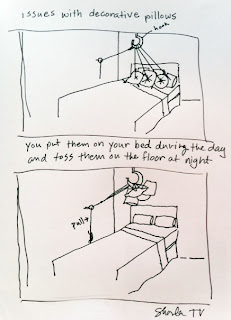 issues with decorative pillows
hook
you put them on your bed during the day
and toss them on the floor at night
pull
Sharla TV